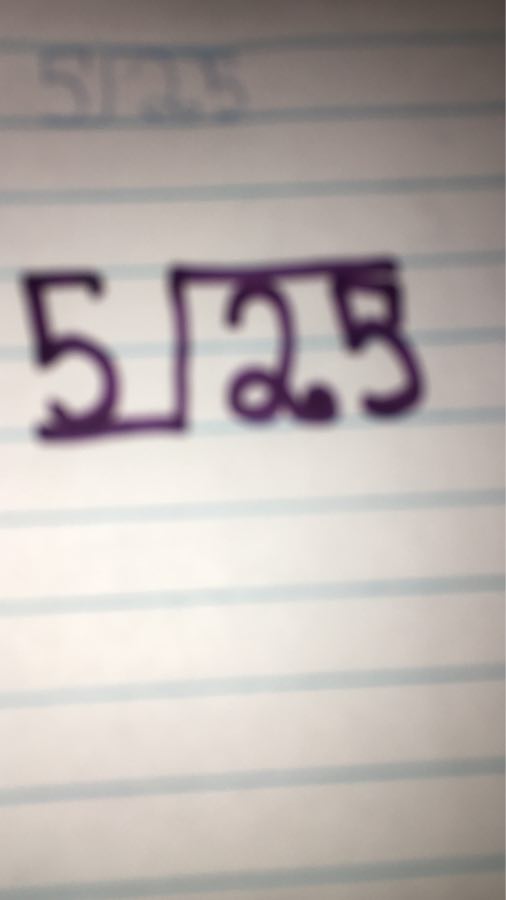 5⟌25
5⟌25